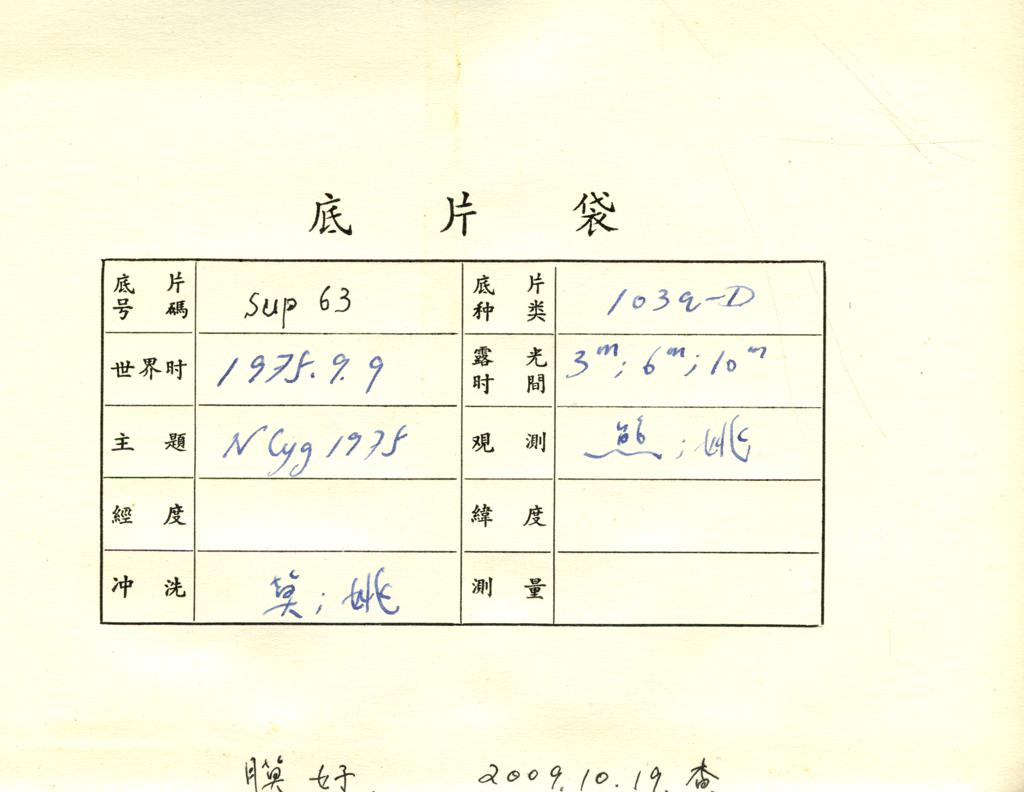 底片袋
底片号碼 Sup 63 底片种类 103a-D
世界时 1975.9.9 露光时間 3m; 6m; 10m
主題 N Cyg 1975 观測 熊; 姚
經度 緯度
冲洗 莫; 姚 測量
膜好. 2009.10.19.查